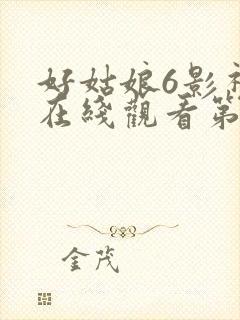 好姑娘6影视
在线觀看第
金茂